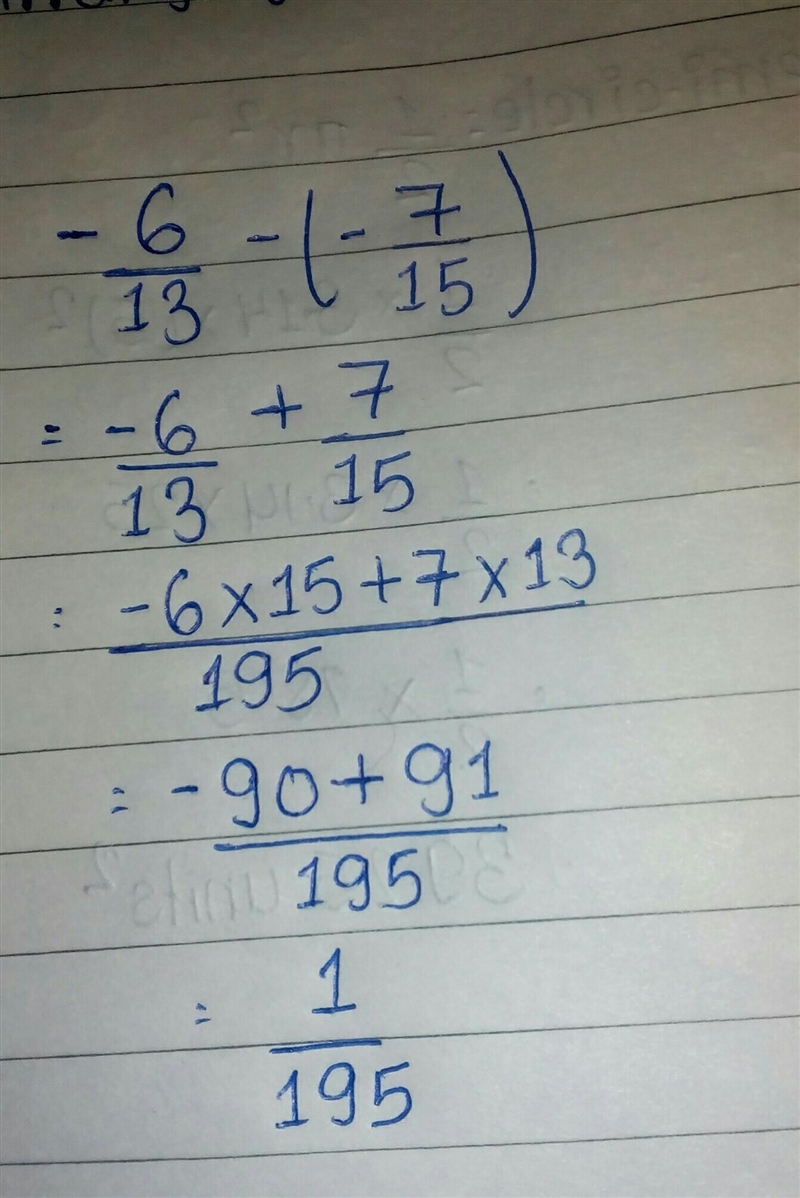 - 6/13 - (- 7/15)
= -6/13 + 7/15
= -6 x 15 + 7 x 13 / 195
= -90 + 91 / 195
= 1/195